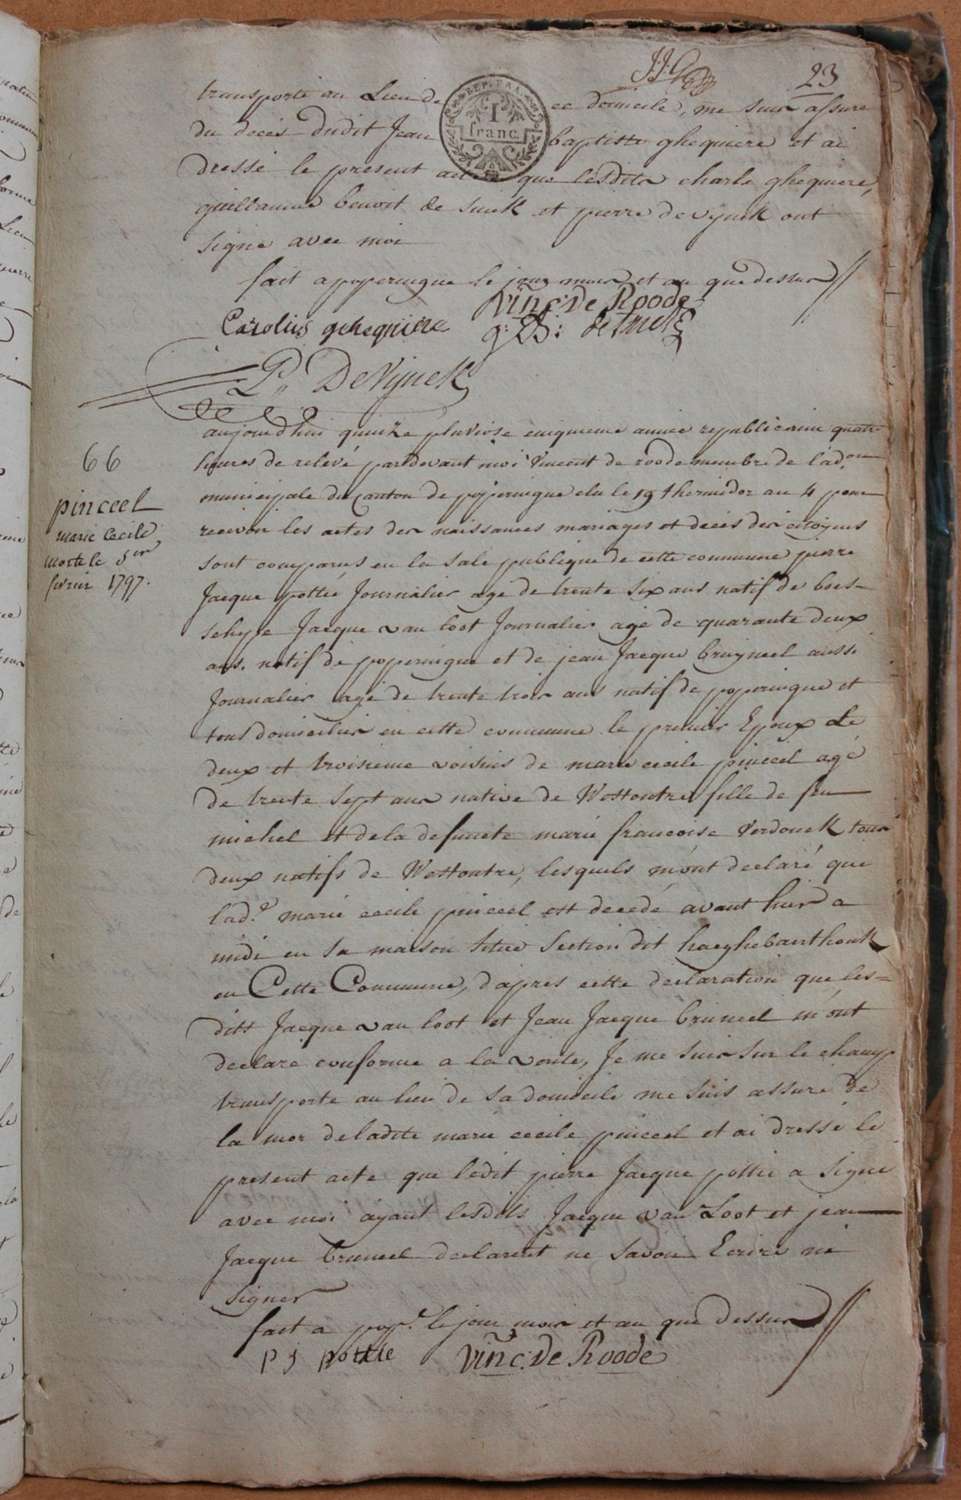 23
transporté au Lieu de ce domicile, me suis assuré
du deces dudit Jean baptiste ghequiere et ai
dressé le present acte que lesdits charle ghequiere,
guillaume benoit de smek et pierre devynck ont
signe avec moi
fait a poperingue le jour mois et an que dessus
REP. FRA.
1
franc.
Vinc: De Roode
Carolus ghequiere g: B:
P,, DeVynck
66
pinceel
marie Cecile
morte le
fevrier 1797.
aujourd'hui quinze pluviose cinquieme année republicaine quatre
heures de relevé pardevant moi Vincent de roode membre de l'adon
municipale du Canton de poperingue elu le 19 thermidor an 4 pour
recevoir les actes des naissances mariages et décès des citoyens
sont comparus en la sale publique de cette commune pierre
Jacque pottié Journalier agé de trente six ans natif de boes-
schepe Jacque van loot Journalier agé de quarante deux
ans. natif de poperingue et de jean Jacque bruyneel aussi
Journalier agé de trente trois ans natif de poperingue et
tous domiciliés en cette commune le premier Epoux le
deux et troisieme voisins de marie cecile pinceel agé
de trente sept ans native de Westoutre fille de feu
michel et de la defuncte marie francoise Verdonck tous
deux natifs de Westoutre, lesquels m'ont declaré que
lad.e marie cecile pinceel est decedé avant hier a
midi en sa maison située Section dit haeghebaerthouk
en Cette Commune, d'apres cette declaration que les-
dits Jacque van loot et Jean Jacque bruneel m'ont
declaré conforme a la verité, Je me suis sur le champ
transporté au lieu de sa domicile me suis assuré de
la mor de ladite marie cecile pinceel et ai dressé le
present acte que ledit pierre Jacque pottie a signe
avec moi ayant lesdits Jacque van Loot et jean
Jacque bruneel declarent ne savoir Ecrire ni
Signer
fait a pop.e le jour mois et an que dessus
p j pottie Vinc: De Roode